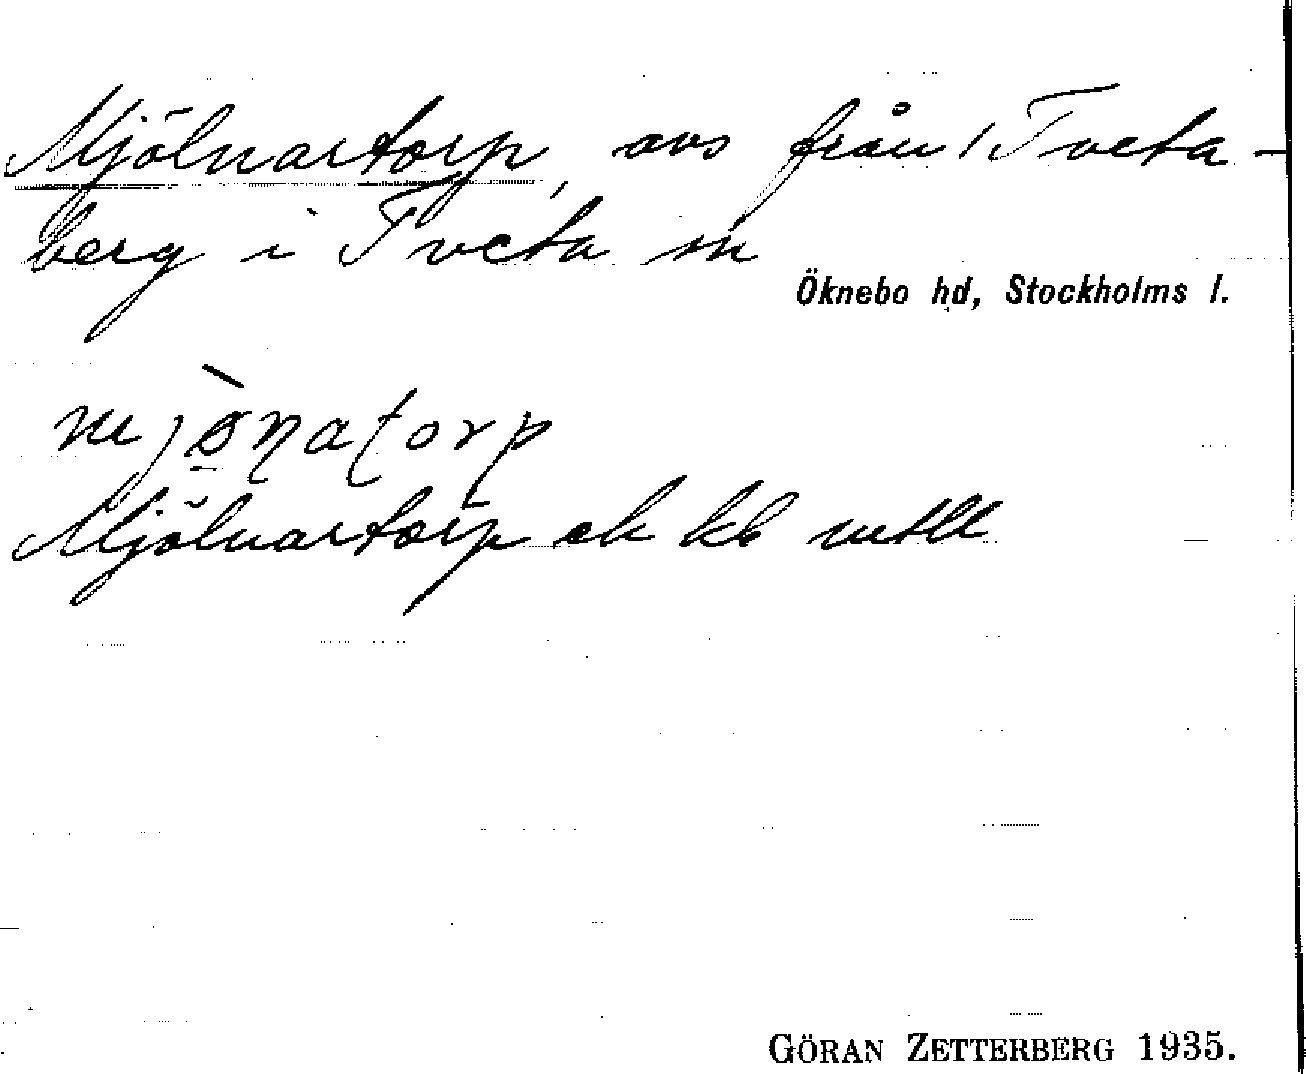 Mjölnartorp, avs från 1 Tveta-
berg i Tveta sn
Öknebo hd, Stockholms l.
mjònatorp
Mjölnartorp ek kb mtll
GÖRAN ZETTERBERG 1935.